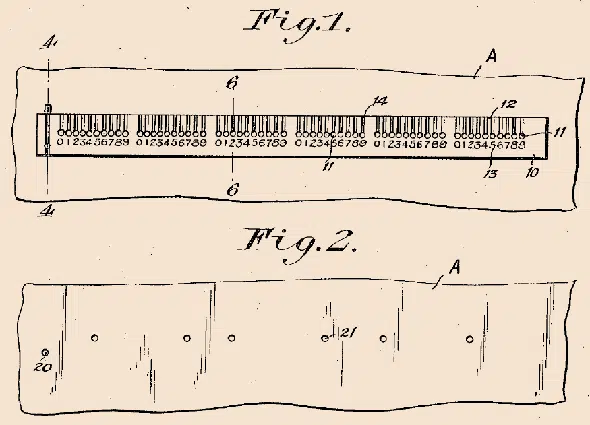 Fig.1.
4 6 14 A 12
0123456789 0123456789 0123456789 0123456789 0123456789 0123456789 11
4 6 11 13 10
Fig.2.
A
20 21